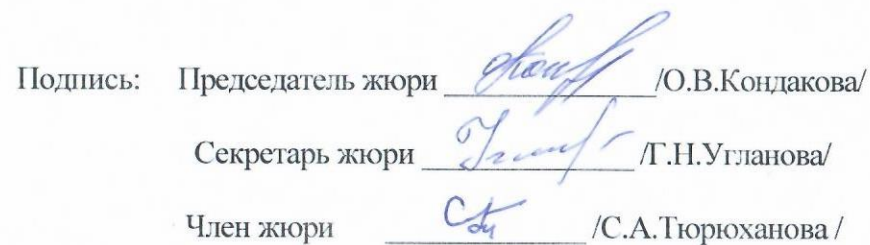 Подпись: Председатель жюри /О.В.Кондакова/
Секретарь жюри /Г.Н.Угланова/
Член жюри /С.А.Тюрюханова /